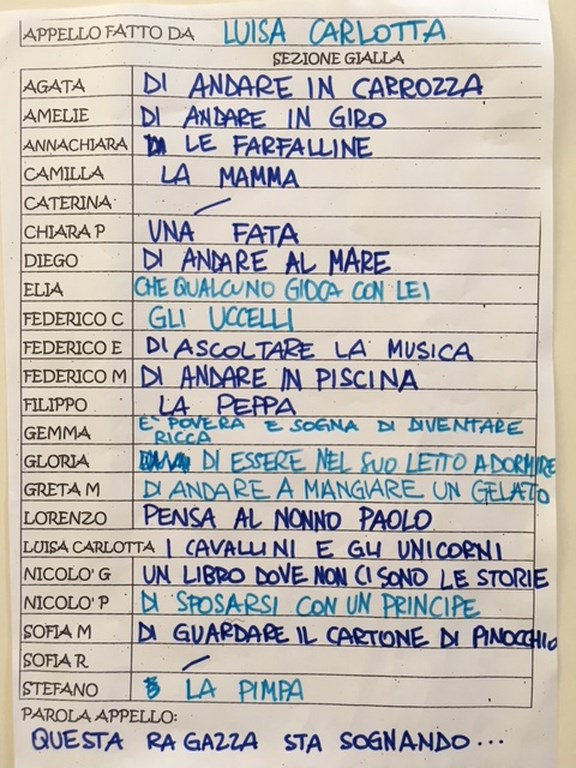 APPELLO FATTO DA LUISA CARLOTTA
SEZIONE GIALLA
AGATA DI ANDARE IN CARROZZA
AMELIE DI ANDARE IN GIRO
ANNACHIARA LE FARFALLINE
CAMILLA LA MAMMA
CATERINA /
CHIARA P UNA FATA
DIEGO DI ANDARE AL MARE
ELIA CHE QUALCUNO GIOCA CON LEI
FEDERICO C GLI UCCELLI
FEDERICO E DI ASCOLTARE LA MUSICA
FEDERICO M DI ANDARE IN PISCINA
FILIPPO LA PEPPA
GEMMA E' POVERA E SOGNA DI DIVENTARE
RICCA
GLORIA DI ESSERE NEL SUO LETTO A DORMIRE
GRETA M DI ANDARE A MANGIARE UN GELATO
LORENZO PENSA AL NONNO PAOLO
LUISA CARLOTTA I CAVALLINI E GLI UNICORNI
NICOLO' G UN LIBRO DOVE NON CI SONO LE STORIE
NICOLO' P DI SPOSARSI CON UN PRINCIPE
SOFIA M DI GUARDARE IL CARTONE DI PINOCCHIO
SOFIA R /
STEFANO LA PIMPA
PAROLA APPELLO:
QUESTA RAGAZZA STA SOGNANDO...